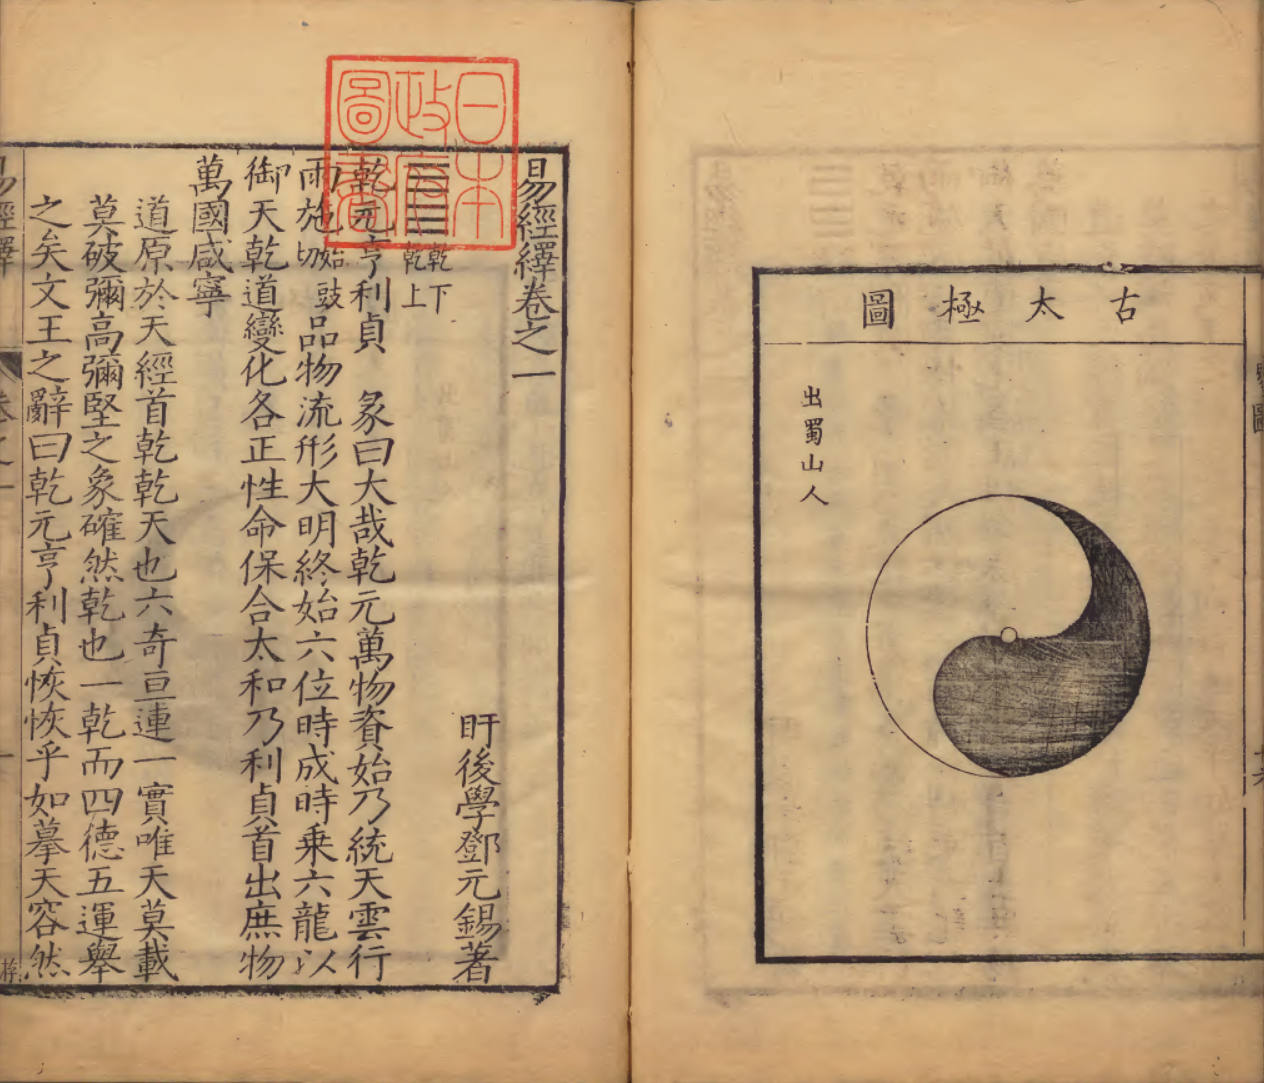 古太極圖
出蜀山人
易經繹卷之一
盱後學鄧元錫著
☰☰乾下乾上
乾元亨利貞　彖曰大哉乾元萬物資始乃統天雲行
雨施始豉切品物流形大明終始六位時成時乗六龍以
御天乾道變化各正性命保合太和乃利貞首出庶物
萬國咸寧
道原於天經首乾乾天也六奇亘連一實唯天莫載
莫破彌高彌堅之象確然乾也一乾而四德五運舉
之矣文王之辭曰乾元亨利貞恢恢乎如摹天容然
易經繹
卷之一
日本
政府
圖書